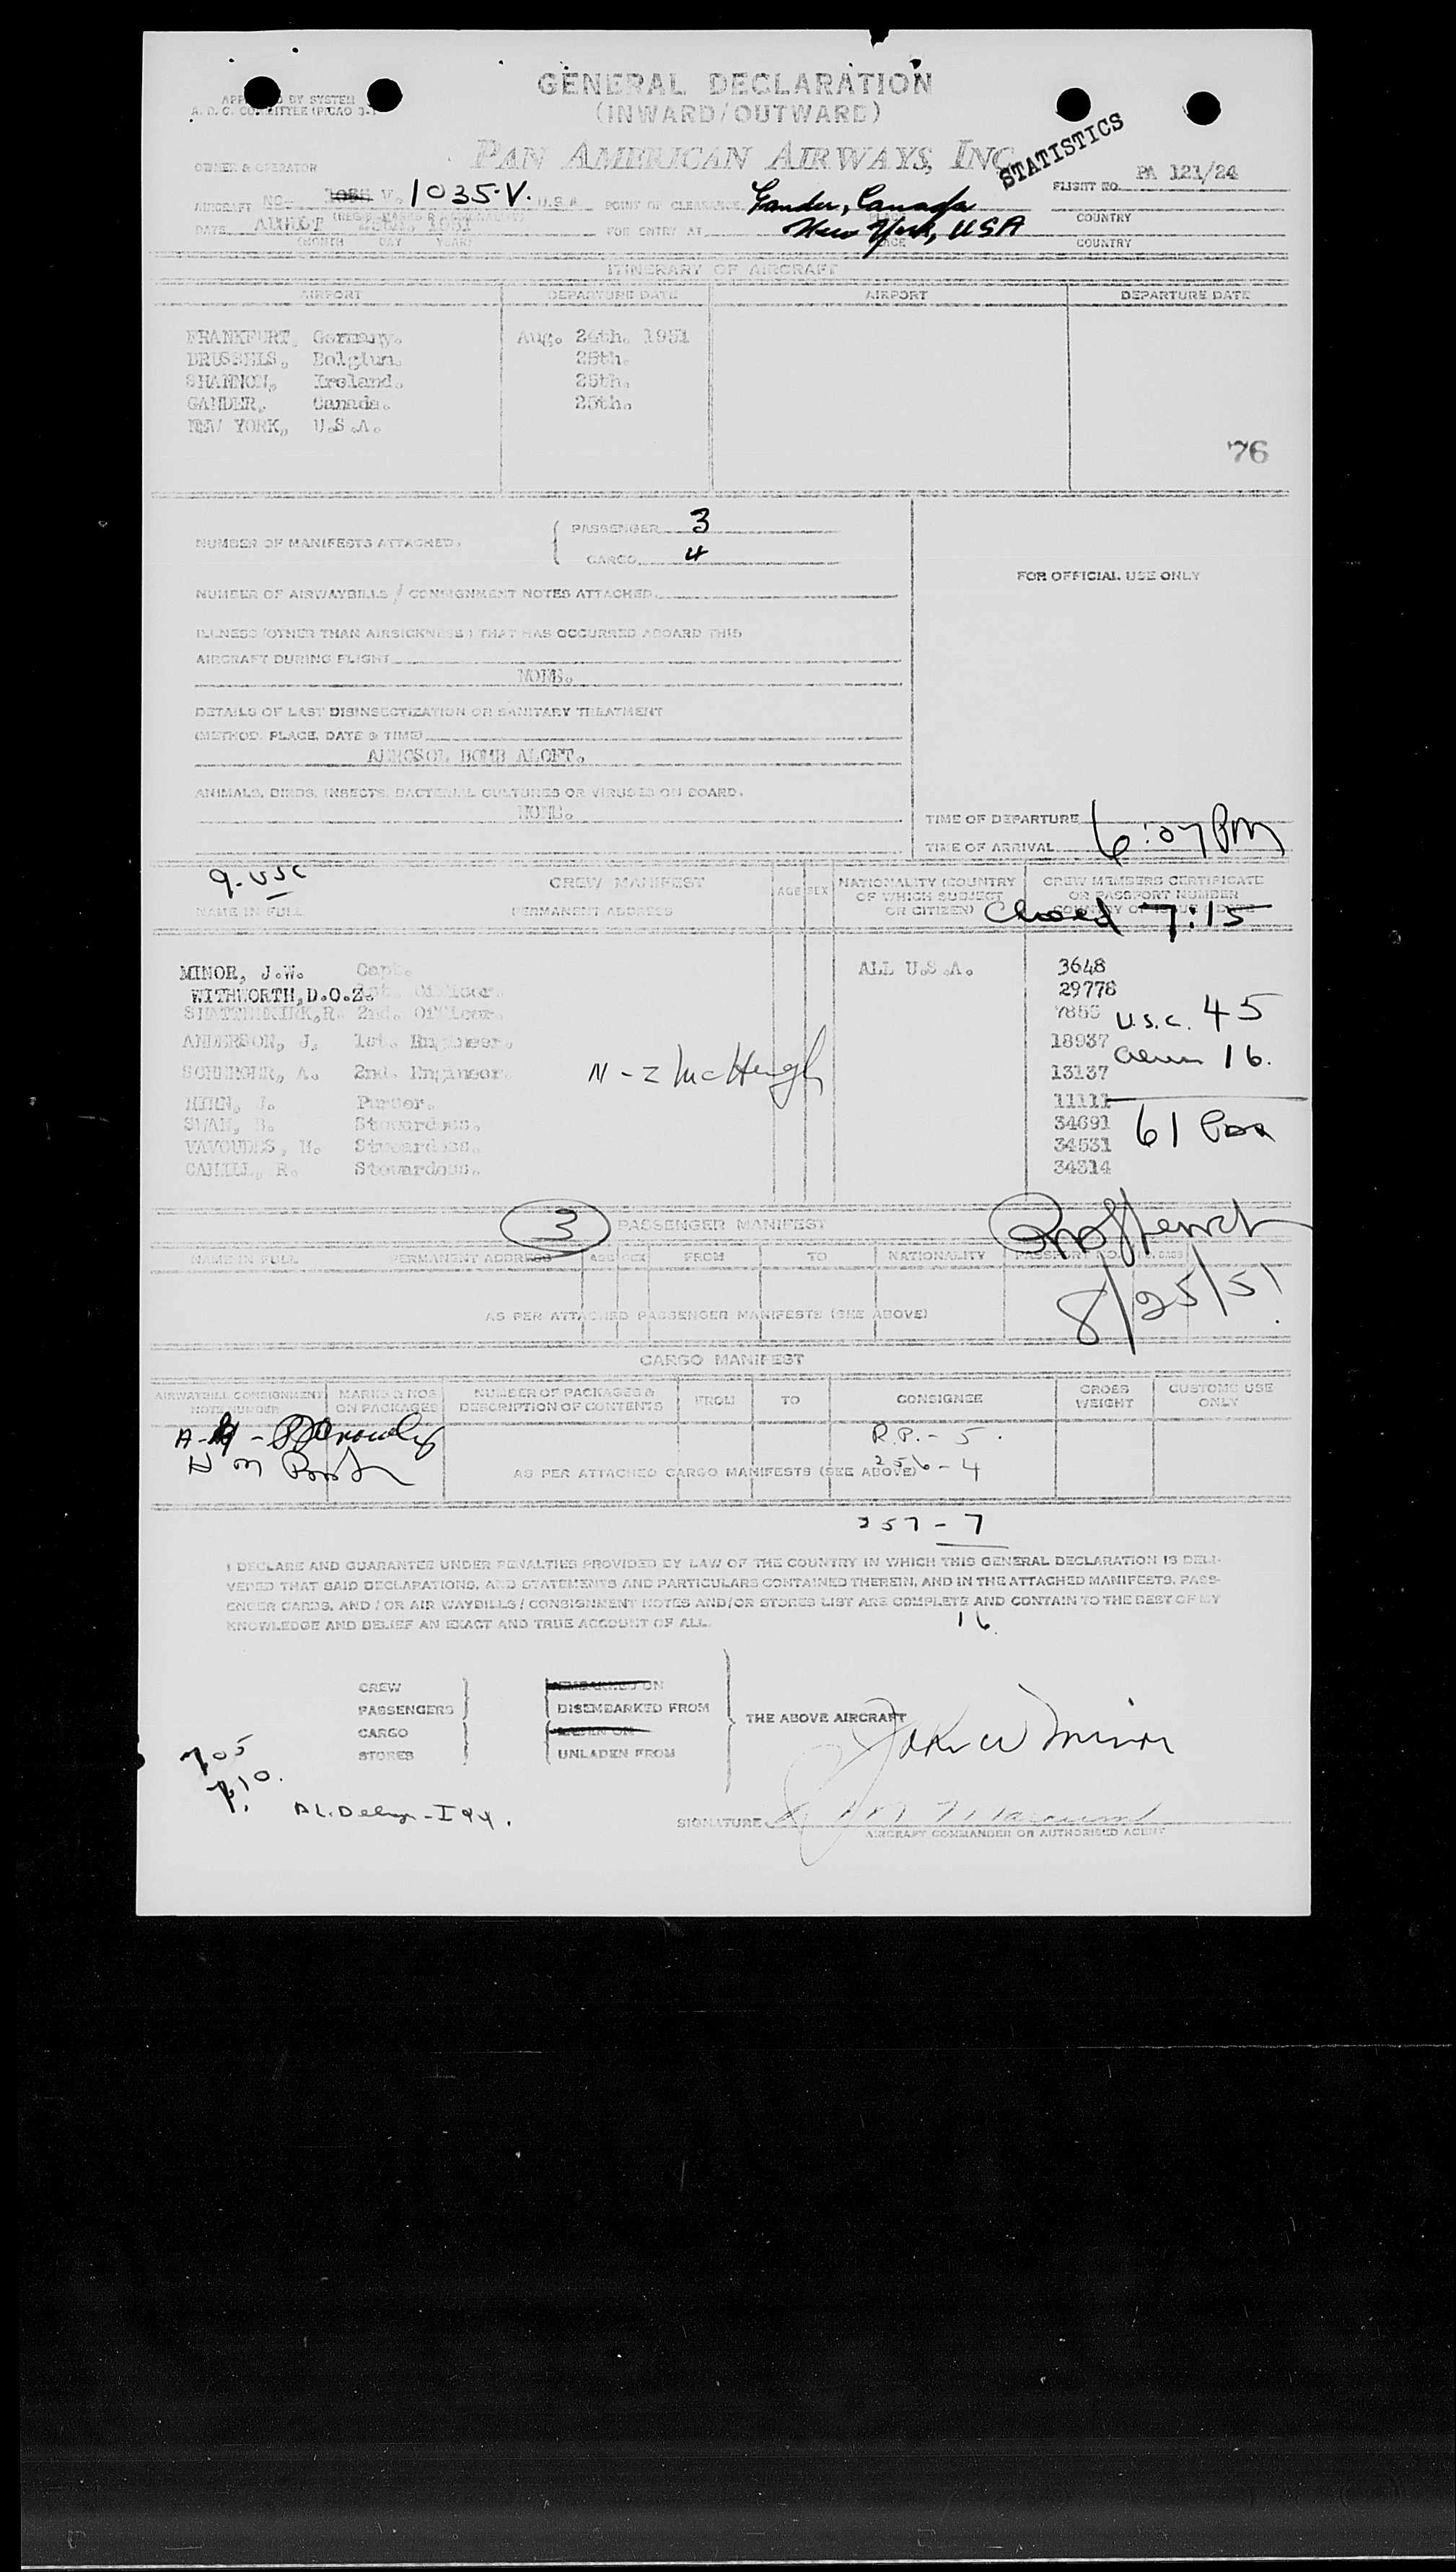 GENERAL DECLARATION
(INWARD/OUTWARD)
BY SYSTEM
PAN AMERICAN AIRWAYS, INC.
STATISTICS
OWNER & OPERATOR
FLIGHT NO. PA 121/24
AIRCRAFT NC- V. 1035.V. U.S.A. POINT OF CLEARANCE Gander, Canada
PLACE COUNTRY
DATE 1951 FOR ENTRY AT New York, USA
(MONTH DAY YEAR) PLACE COUNTRY
ITINERARY OF AIRCRAFT
AIRPORT DEPARTURE DATE AIRPORT DEPARTURE DATE
FRANKFURT, Germany. Aug. 24th. 1951
BRUSSELS, Belgium. 25th.
SHANNON, Ireland. 25th.
GANDER, Canada. 25th.
NEW YORK, U.S.A.
76
NUMBER OF MANIFESTS ATTACHED.
PASSENGER 3
CARGO 4
FOR OFFICIAL USE ONLY
NUMBER OF AIRWAYBILLS / CONSIGNMENT NOTES ATTACHED
ILLNESS (OTHER THAN AIRSICKNESS) THAT HAS OCCURRED ABOARD THIS
AIRCRAFT DURING FLIGHT
NONE.
DETAILS OF LAST DISINSECTIZATION OR SANITARY TREATMENT
(METHOD, PLACE, DATE & TIME)
AEROSOL BOMB ALOFT.
ANIMALS, BIRDS, INSECTS, BACTERIAL CULTURES OR VIRUSES ON BOARD.
NONE.
TIME OF DEPARTURE
TIME OF ARRIVAL 6:07 PM
9-USC
CREW MANIFEST AGE SEX NATIONALITY (COUNTRY OF WHICH SUBJECT OR CITIZEN) CREW MEMBERS CERTIFICATE OR PASSPORT NUMBER
NAME IN FULL PERMANENT ADDRESS
7:15
MINOR, J.W. Capt. ALL U.S.A. 3648
WITHWORTH, D.O.Z. 1st. Officer. 29778
2nd. Officer. U.S.C. 45
ANDERSON, J. 1st. Engineer. 18937
2nd. Engineer. 13137 16.
N-Z McHugh
J. Purser. 11111
Stewardess. 34691 61
VAVOUDES, H. Stewardess. 34531
CAHILL, R. Stewardess. 34314
3 PASSENGER MANIFEST
NAME IN FULL PERMANENT ADDRESS AGE SEX FROM TO NATIONALITY PASSPORT NO.
8/25/51
AS PER ATTACHED PASSENGER MANIFESTS (SEE ABOVE)
CARGO MANIFEST
AIRWAYBILL CONSIGNMENT NOTE NUMBER MARKS & NOS ON PACKAGES NUMBER OF PACKAGES & DESCRIPTION OF CONTENTS FROM TO CONSIGNEE GROSS WEIGHT CUSTOMS USE ONLY
R.P. - 5.
AS PER ATTACHED CARGO MANIFESTS (SEE ABOVE)
256-4
257-7
I DECLARE AND GUARANTEE UNDER PENALTIES PROVIDED BY LAW OF THE COUNTRY IN WHICH THIS GENERAL DECLARATION IS DELI-
VERED THAT SAID DECLARATIONS, AND STATEMENTS AND PARTICULARS CONTAINED THEREIN, AND IN THE ATTACHED MANIFESTS, PASS-
ENGER CARDS, AND / OR AIR WAYBILLS / CONSIGNMENT NOTES AND/OR STORES LIST ARE COMPLETE AND CONTAIN TO THE BEST OF MY
KNOWLEDGE AND BELIEF AN EXACT AND TRUE ACCOUNT OF ALL.
16.
CREW EMBARKED ON
PASSENGERS DISEMBARKED FROM
THE ABOVE AIRCRAFT
CARGO LADEN ON
STORES UNLADEN FROM
John W Minor
705
710.
SIGNATURE
AIRCRAFT COMMANDER OR AUTHORISED AGENT